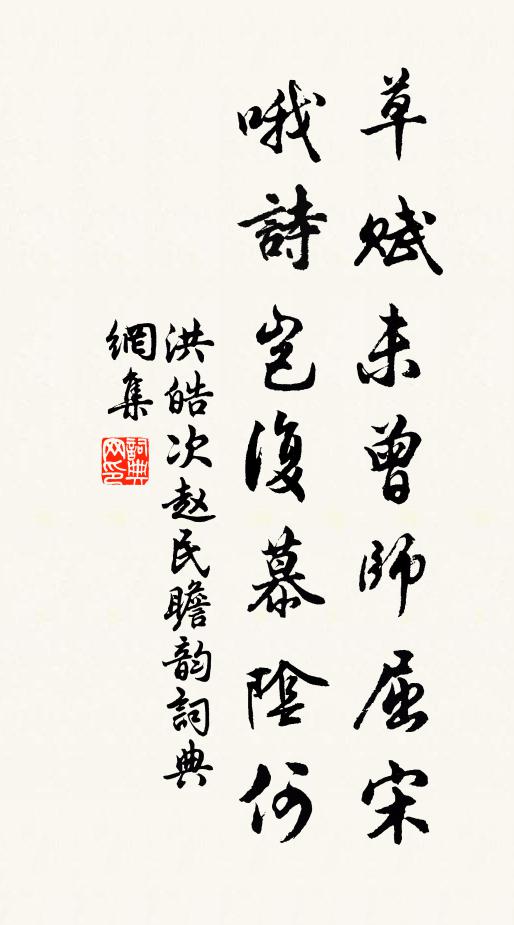 草賦未曾師屈宋
哦詩豈復慕陰何
洪皓次赵民瞻韵詞典
網集
詞典
网印